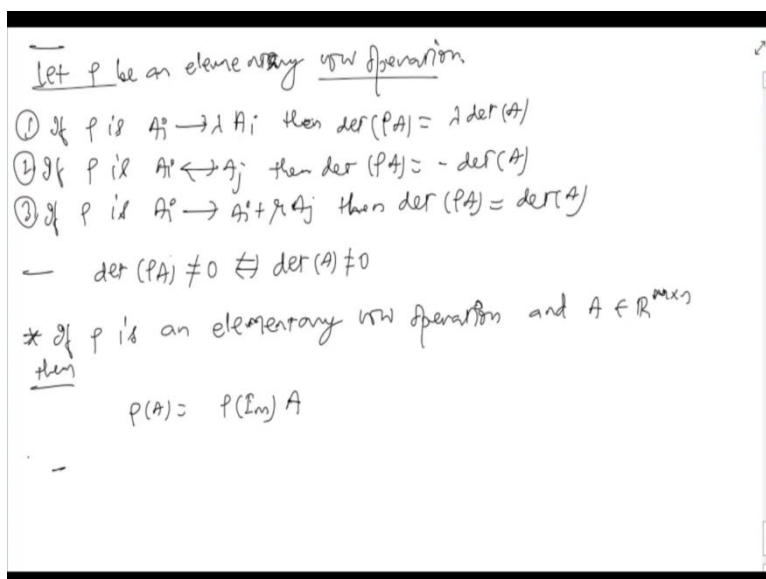 Let ρ be an elementary row operation.
① If ρ is Ai → λ Ai then det(ρA) = λ det(A)
② If ρ is Ai ↔ Aj then det (ρA) = - det(A)
③ If ρ is Ai → Ai + μ Aj then det (ρA) = det(A)
— det (ρA) ≠ 0 ⇔ det (A) ≠ 0
* If ρ is an elementary row operation and A ∈ R^{m×n}
then
ρ(A) = ρ(Im) A
-